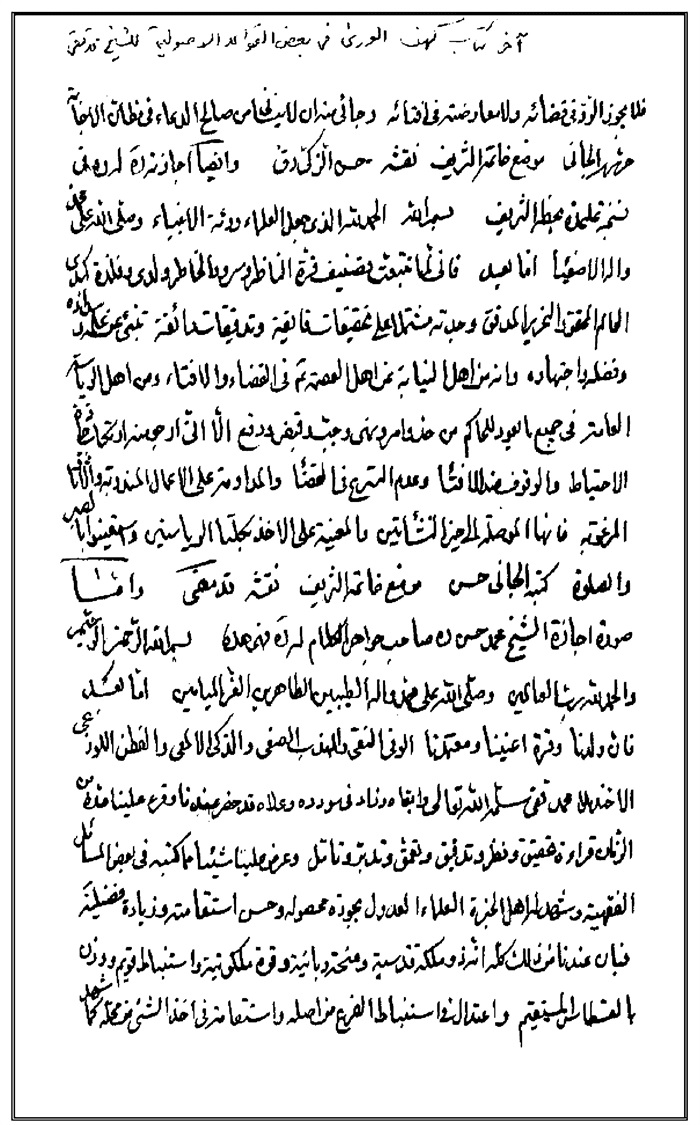 آخر كتاب كهف الورى في بعض القواعد الاصولية للشيخ محمد تقي
فلا يجوز الردّ في قضائه ولا معارضته في افتائه وجائي منه ان لا ينساني من صالح الدعاء في مظان الاجابة
حرره الجاني موضع خاتمه الشريف نقشه حسن الزكي وايضا اجازته له في
نسخة تلميذه بخطه الشريف بسم الله الحمد لله الذي جعل العلماء ورثة الانبياء وصلى الله على محمد
واله الاصفياء اما بعد فاني لما بتصنيف قرة الناظر وسرور الخاطر ولدي
العالم المحقق والنحرير المدقق وجدته مشتملا على تحقيقات فائقة وتدقيقات رائقة تنبئ عن علمه
وفضله واجتهاده وانه من اهل النيابة عن اهل العصمة في القضاء والافتاء ومن اهل الرياسة
العامة في جميع ما يعود للحاكم من حد وامر ونهي وجب وقبض ودفع الا اني ارجو منه
الاحتياط والوقوف عند الافتاء وعدم التسرع في القضاء والمداومة على الاعمال المندوبة
المرغوبة فانها الموصلة الى خير النشأتين والمعينة على الاخذ بكلتا الرياستين واستعينوا بالصبر
والصلوة كتبه الجاني حسن موضع خاتمه الشريف نقشه
صورة اجازة الشيخ محمد حسن ره صاحب جواهر الكلام له ره فهي هذه بسم الله الرحمن الرحيم
والحمد لله رب العالمين وصلى الله على محمد واله الطيبين الطاهرين الغر الميامين اما بعد
فان ولدنا وقرة اعيننا ومعتمدنا الوفي النقي والمهذب الصفي والذكي الالمعي والفطن اللوذعي
الاخند ملا محمد تقي سلمه الله تعالى وابقاه وزاد في سودده وعلاه قد حضر عندنا وقرء علينا مدة من
الزمان قراءة تحقيق ونظر وتدقيق وتعمق وتدبر وتامل وعرض علينا شيئا مما كتبه في بعض المسائل
الفقهية وشهد له اهل الخبرة العلماء العدول بجودة محصوله وحسن استقامته وزيادة فضيلته
فبان عندنا من ذلك كله انه ذو ملكة قدسية ومنحة ربانية وقوة ملكوتية واستنباط قويم ووزن
بالقسطاس المستقيم واعتدال في استنباط الفرع من اصله واستقامة في اخذ الشئ من محله كما شهد